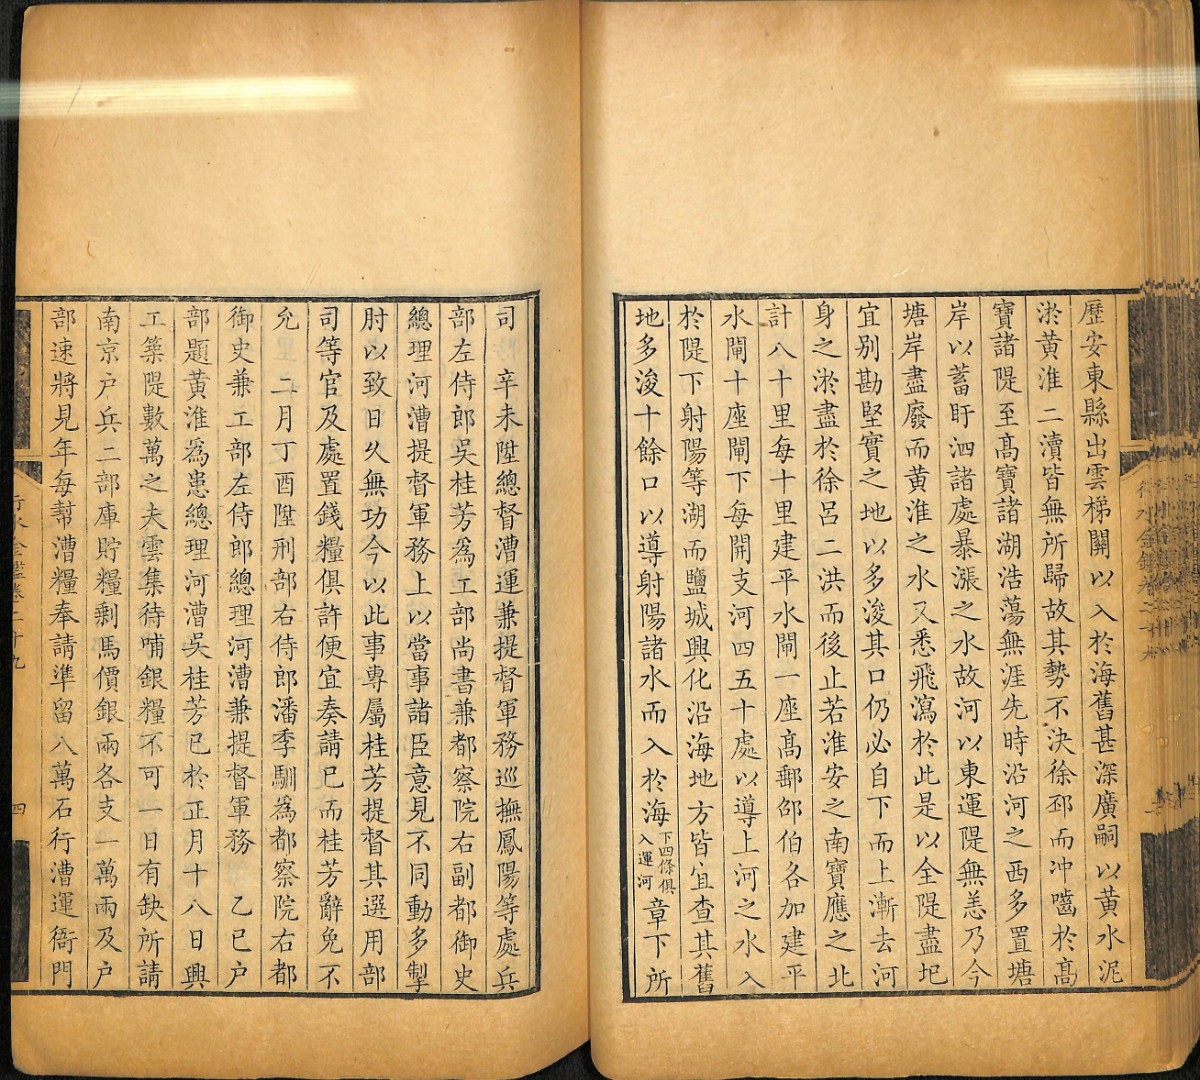 歷安東縣出雲梯關以入於海舊甚深廣嗣以黃水泥
淤黃淮二瀆皆無所歸故其勢不決徐邳而冲嚙於高
寶諸隄至高寶諸湖浩蕩無涯先時沿河之西多置塘
岸以蓄盱泗諸處暴漲之水故河以東運隄無恙乃今
塘岸盡廢而黃淮之水又悉飛瀉於此是以全隄盡圮
宜别勘堅實之地以多浚其口仍必自下而上漸去河
身之淤盡於徐呂二洪而後止若淮安之南寶應之北
計八十里每十里建平水閘一座高郵邵伯各加建平
水閘十座閘下每開支河四五十處以導上河之水入
於隄下射陽等湖而鹽城興化沿海地方皆宜查其舊
地多浚十餘口以導射陽諸水而入於海下四條俱入運河章下所
司　辛未陞總督漕運兼提督軍務巡撫鳳陽等處兵
部左侍郎吳桂芳為工部尚書兼都察院右副都御史
總理河漕提督軍務上以當事諸臣意見不同動多掣
肘以致日久無功今以此事專屬桂芳提督其選用部
司等官及處置錢糧俱許便宜奏請已而桂芳辭免不
允　二月丁酉陞刑部右侍郎潘季馴為都察院右都
御史兼工部左侍郎總理河漕兼提督軍務　乙巳户
部題黃淮為患總理河漕吳桂芳已於正月十八日興
工築隄數萬之夫雲集待哺銀糧不可一日有缺所請
南京户兵二部庫貯糧剩馬價銀兩各支一萬兩及户
部速將見年每幫漕糧奉請準留八萬石行漕運衙門
行水金鑑卷二十九
四